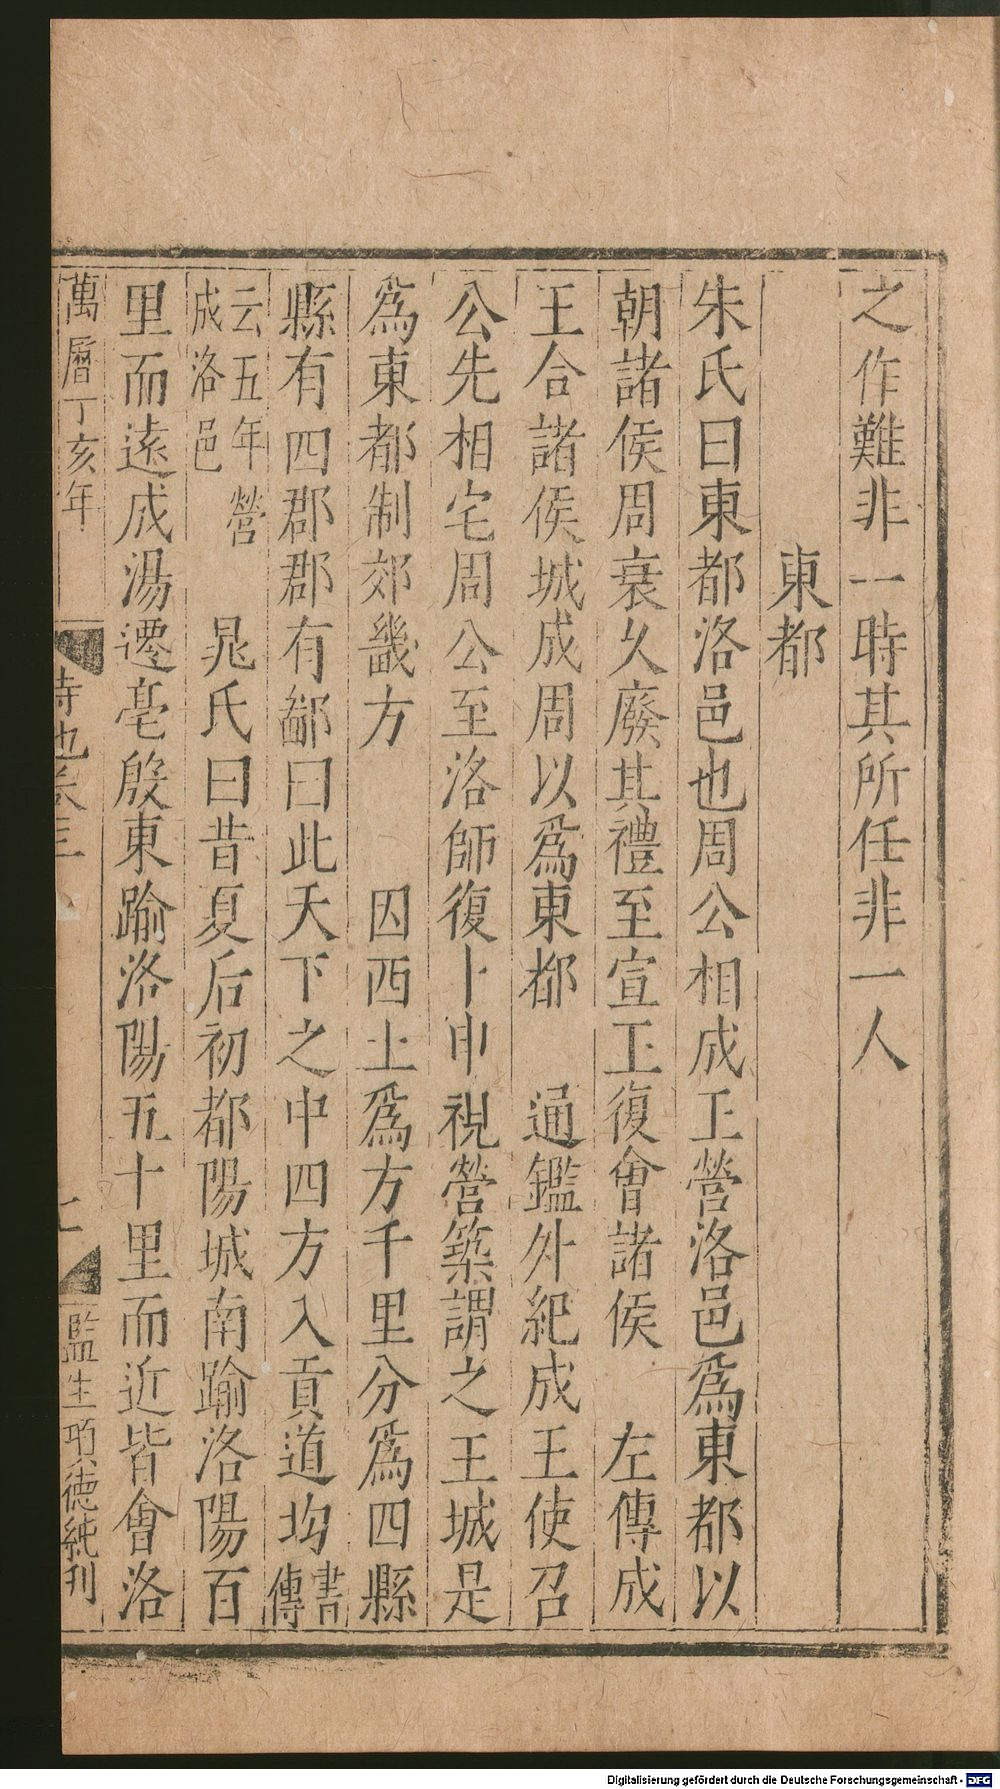 之作難非一時其所任非一人
東都
朱氏曰東都洛邑也周公相成王營洛邑爲東都以
朝諸侯周衰久廢其禮至宣王復會諸侯　左傳成
王合諸侯城成周以爲東都　通鑑外紀成王使召
公先相宅周公至洛師復卜申視營築謂之王城是
爲東都制郊畿方　　因西土爲方千里分爲四縣
縣有四郡郡有鄙曰此天下之中四方入貢道均書傳
云五年營成洛邑　晁氏曰昔夏后初都陽城南踰洛陽百
里而遠成湯遷亳殷東踰洛陽五十里而近皆會洛
萬曆丁亥年
詩地卷三
監生項德純刊
Digitalisierung gefördert durch die Deutsche Forschungsgemeinschaft - DFG